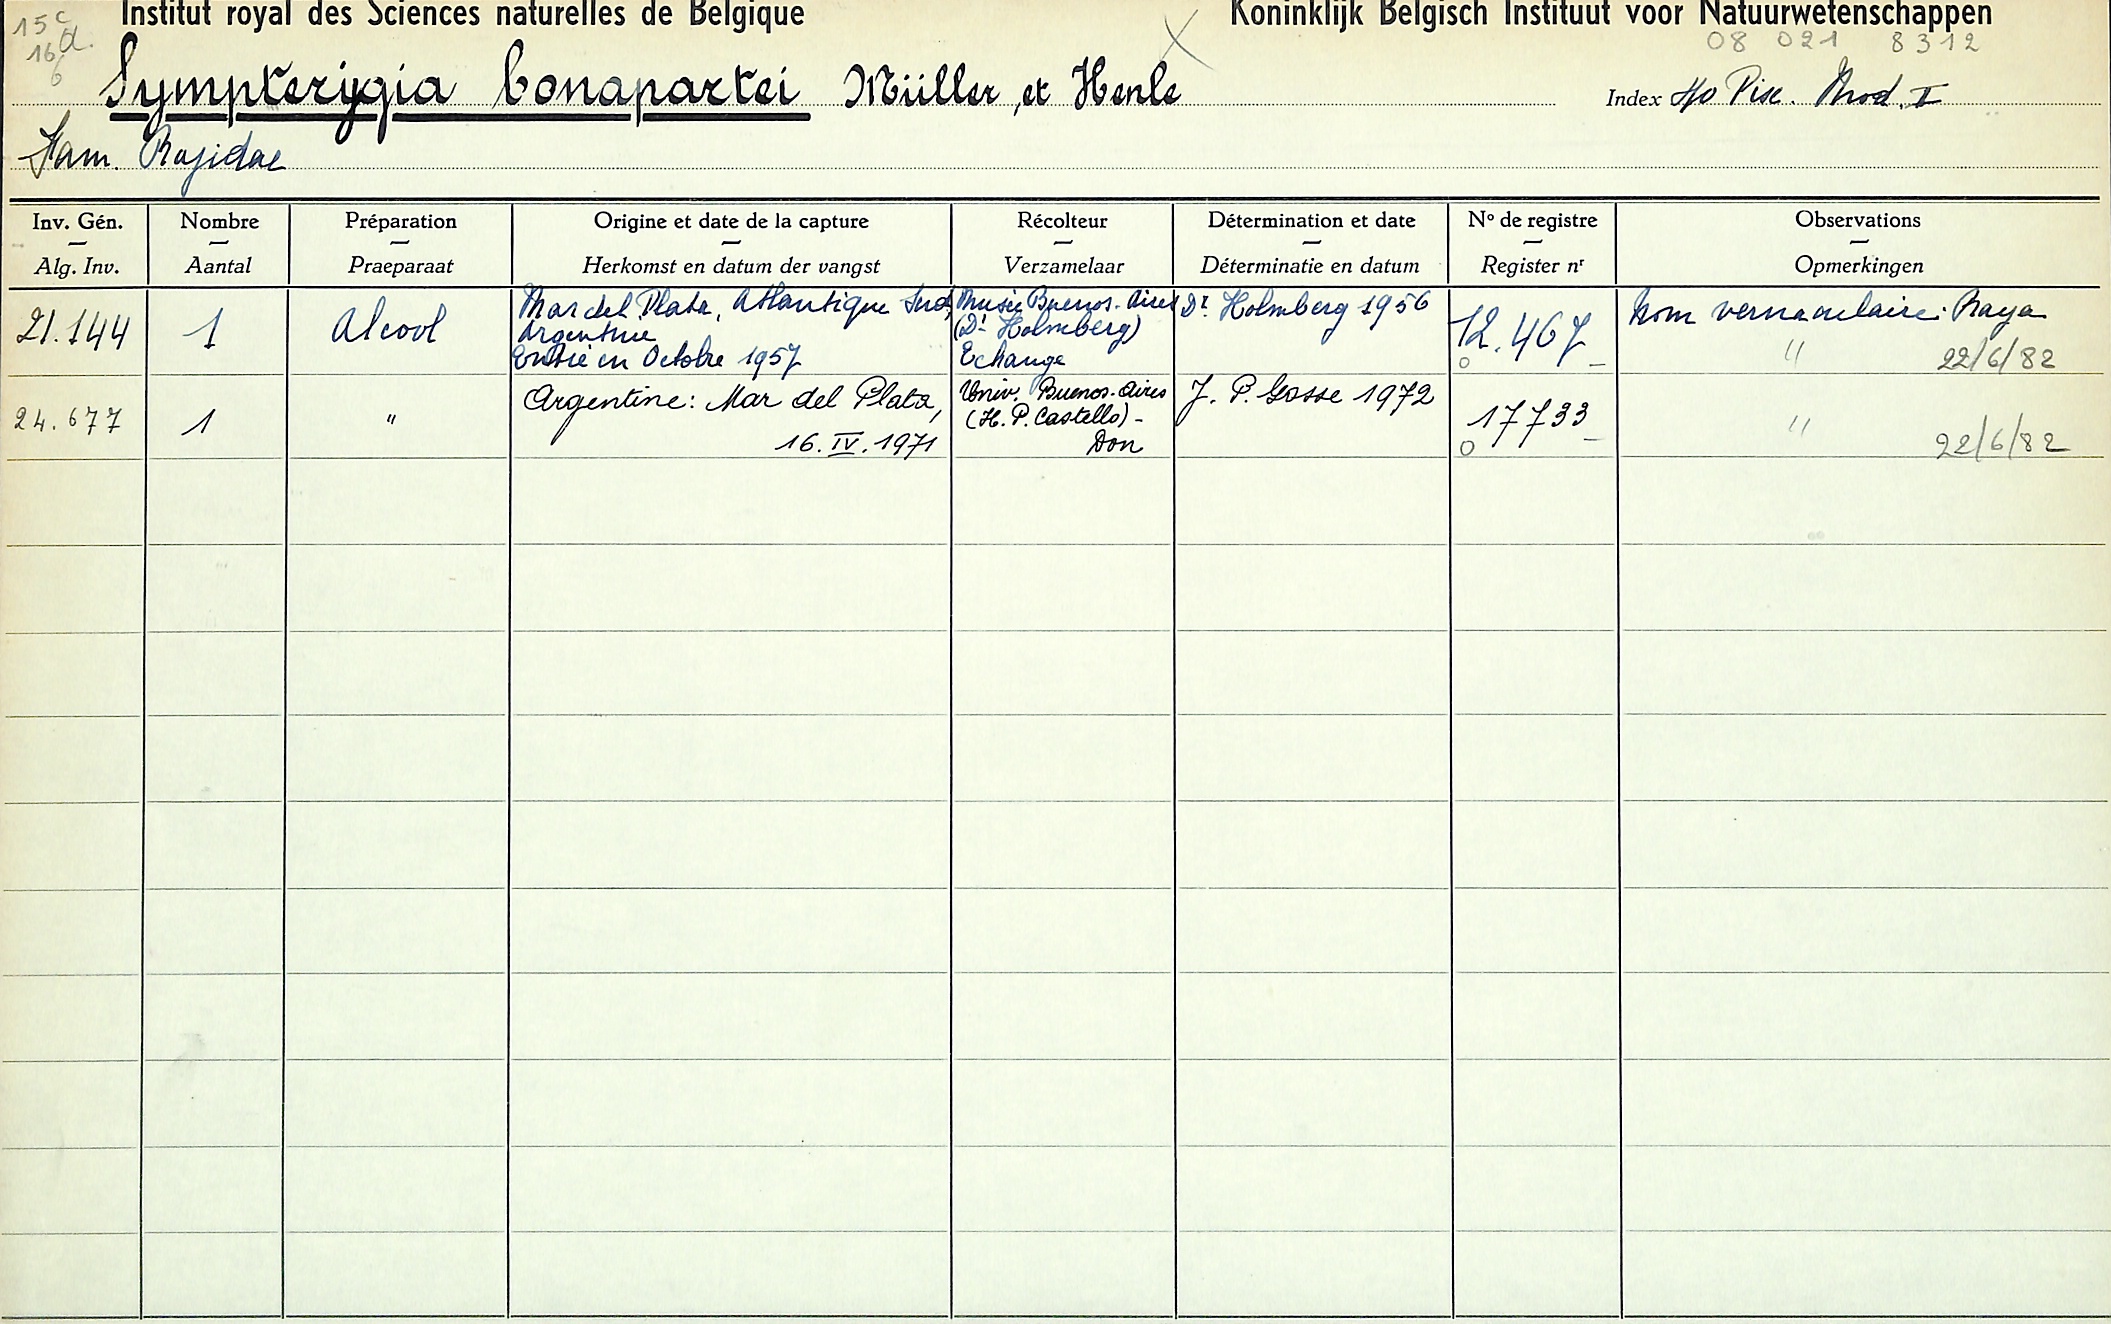 15 c
16 a.
6
Institut royal des Sciences naturelles de Belgique
Koninklijk Belgisch Instituut voor Natuurwetenschappen
08 021 8312
Sympterygia bonapartei Müller et Henle
Index Pisc. Prod. I
Fam. Rajidae
Inv. Gén. Nombre Préparation Origine et date de la capture Récolteur Détermination et date No de registre Observations
Alg. Inv. Aantal Praeparaat Herkomst en datum der vangst Verzamelaar Déterminatie en datum Register nr Opmerkingen
21.144 1 Alcool
Mar del Plata, Atlantique Sud,
Argentine
Entré en Octobre 1957
Musée Buenos-Aires
(Dr Holmberg)
Echange
Dr. Holmberg 1956
12.467
Nom vernaculaire: Raya
" 22/6/82
24.677 1 "
Argentine: Mar del Plata,
16.IV.1971
Univ. Buenos-Aires
(H.P. Castello)-
Don
J. P. Gosse 1972
17733
" 22/6/82